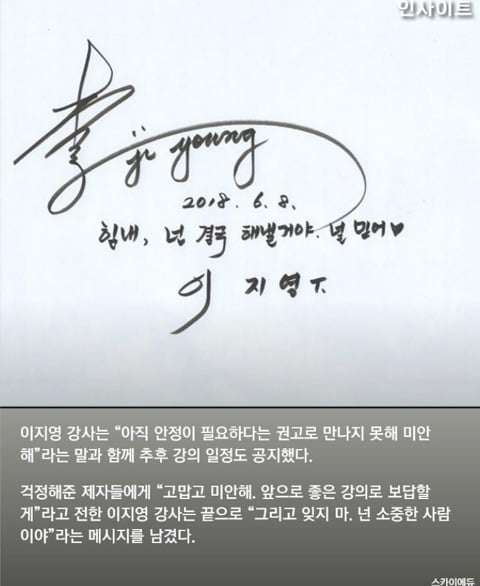 인사이트
李 ji young
2018. 6. 8.
힘내, 넌 결국 해낼거야. 널 믿어♥
이지영 T.
이지영 강사는 “아직 안정이 필요하다는 권고로 만나지 못해 미안
해”라는 말과 함께 추후 강의 일정도 공지했다.
걱정해준 제자들에게 “고맙고 미안해. 앞으로 좋은 강의로 보답할
게”라고 전한 이지영 강사는 끝으로 “그리고 잊지 마. 넌 소중한 사람
이야”라는 메시지를 남겼다.
스카이에듀